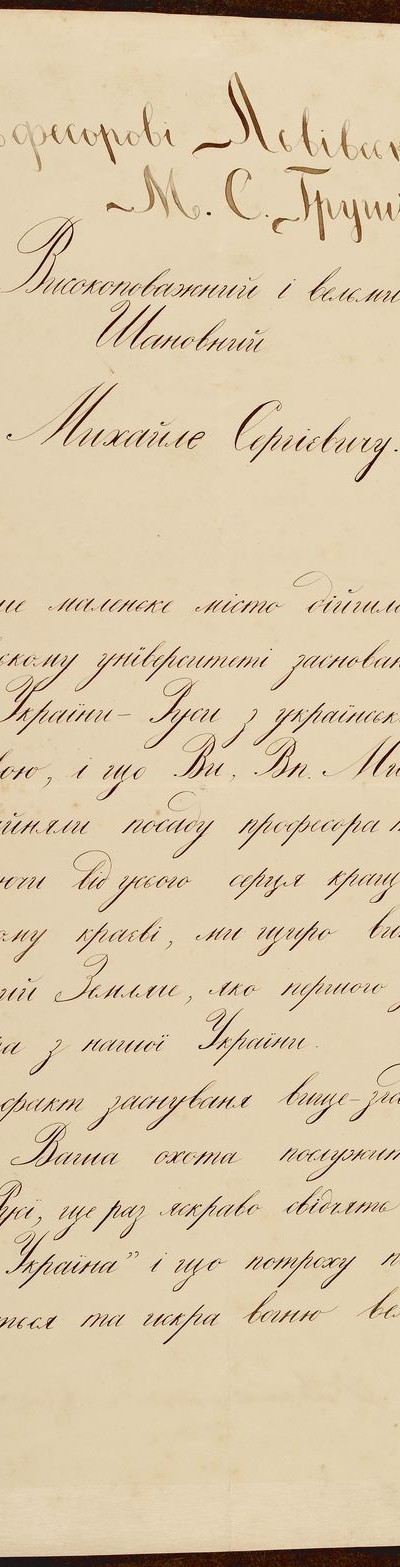 фесорові Львівськ
М. С. Груш
Високоповажний і вельми
Шановний
Михайле Сергієвичу.
ше маленьке місто дійшла
ському університеті заснован
України-Руси з українськ
вою, і що Ви, Вп. Ми
йняли посаду професора
ючи від усього серця кращ
ому краєві, ми щиро ви
ий Земляче, яко першого
ка з нашої України.
факт заснуваня вище-зга
Ваша охота послужит
Русі, ще раз яскраво свідчять
Україна" і що потроху п
ться та искра вогню вел